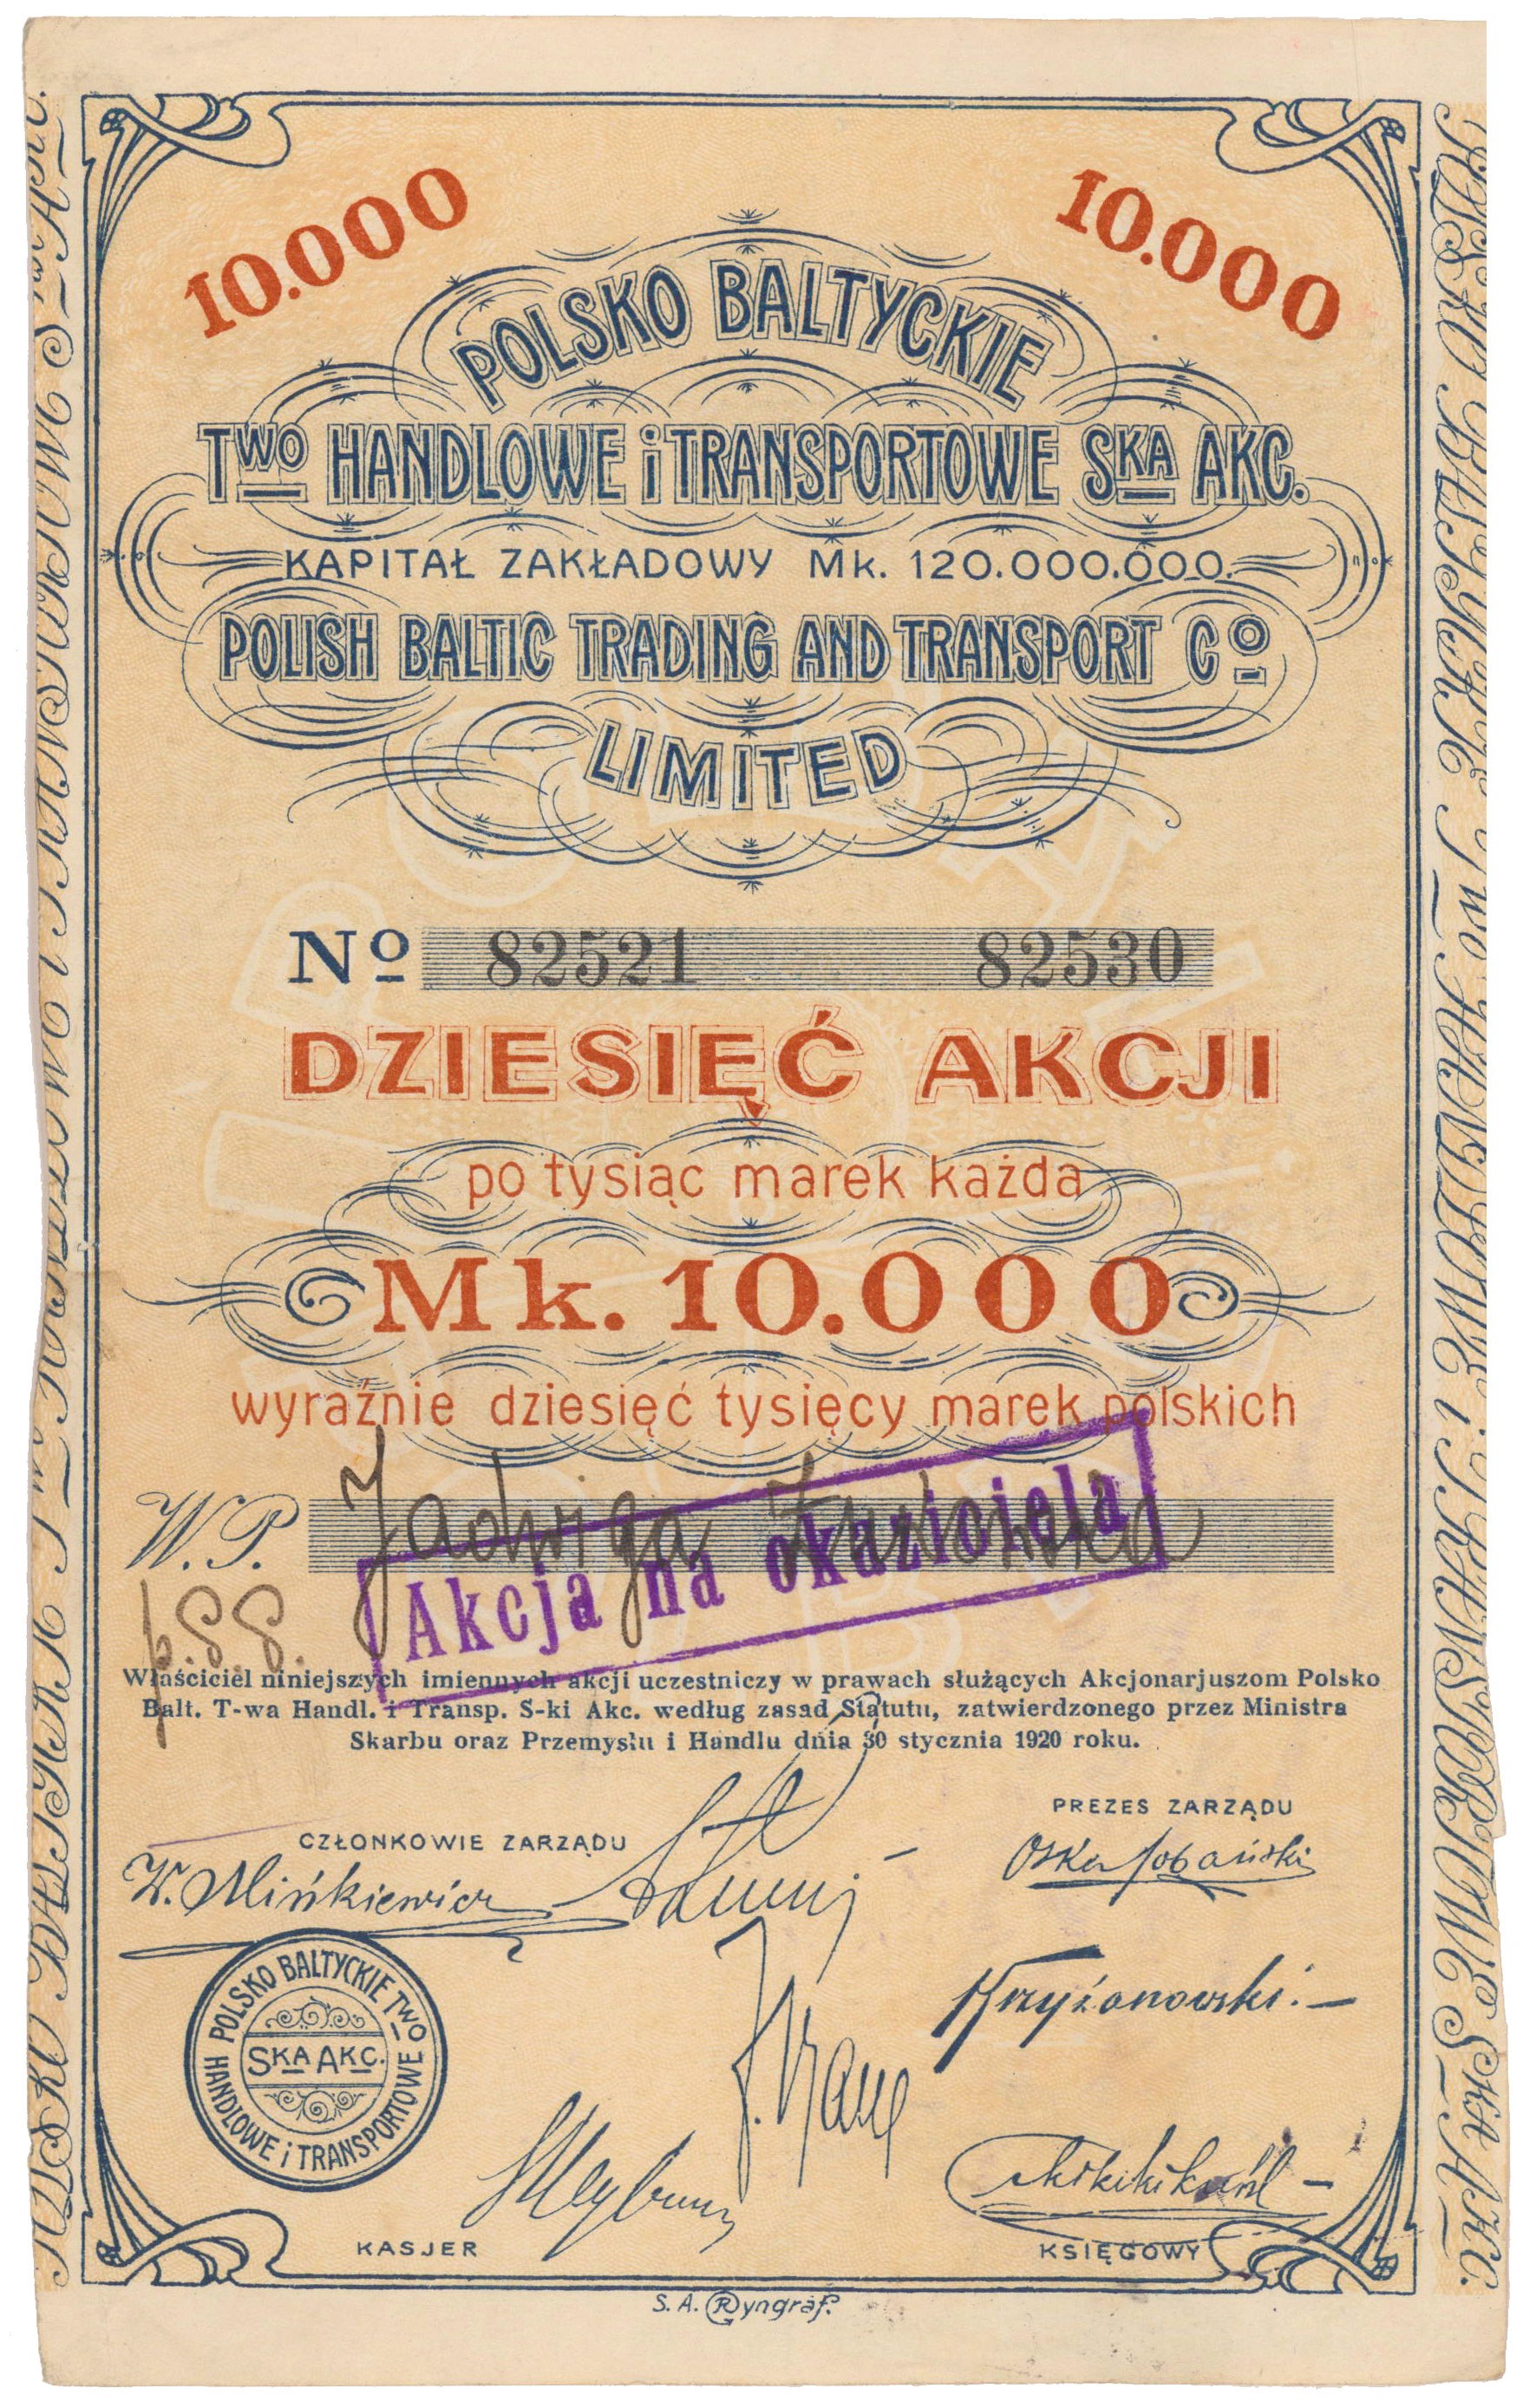 10.000
10.000
POLSKO BALTYCKIE
TWO HANDLOWE i TRANSPORTOWE SKA AKC.
KAPITAŁ ZAKŁADOWY Mk. 120.000.000.
POLISH BALTIC TRADING AND TRANSPORT Cº
LIMITED
Nº 82521 82530
DZIESIĘĆ AKCJI
po tysiąc marek każda
Mk. 10.000
wyraźnie dziesięć tysięcy marek polskich
W.P. Jadwiga
Akcja na okaziciela
Właściciel niniejszych imiennych akcji uczestniczy w prawach służących Akcjonarjuszom Polsko
Balt. T-wa Handl. i Transp. S-ki Akc. według zasad Statutu, zatwierdzonego przez Ministra
Skarbu oraz Przemysłu i Handlu dnia 30 stycznia 1920 roku.
PREZES ZARZĄDU
CZŁONKOWIE ZARZĄDU
W. Mińkiewicz
Krzyżanowski.
POLSKO BALTYCKIE TWO
HANDLOWE i TRANSPORTOWE
SKA AKC.
KASJER
KSIĘGOWY
S. A. Ryngraf.
POLSKO BALTYCKIE TWO HANDLOWE i TRANSPORTOWE SKA AKC.